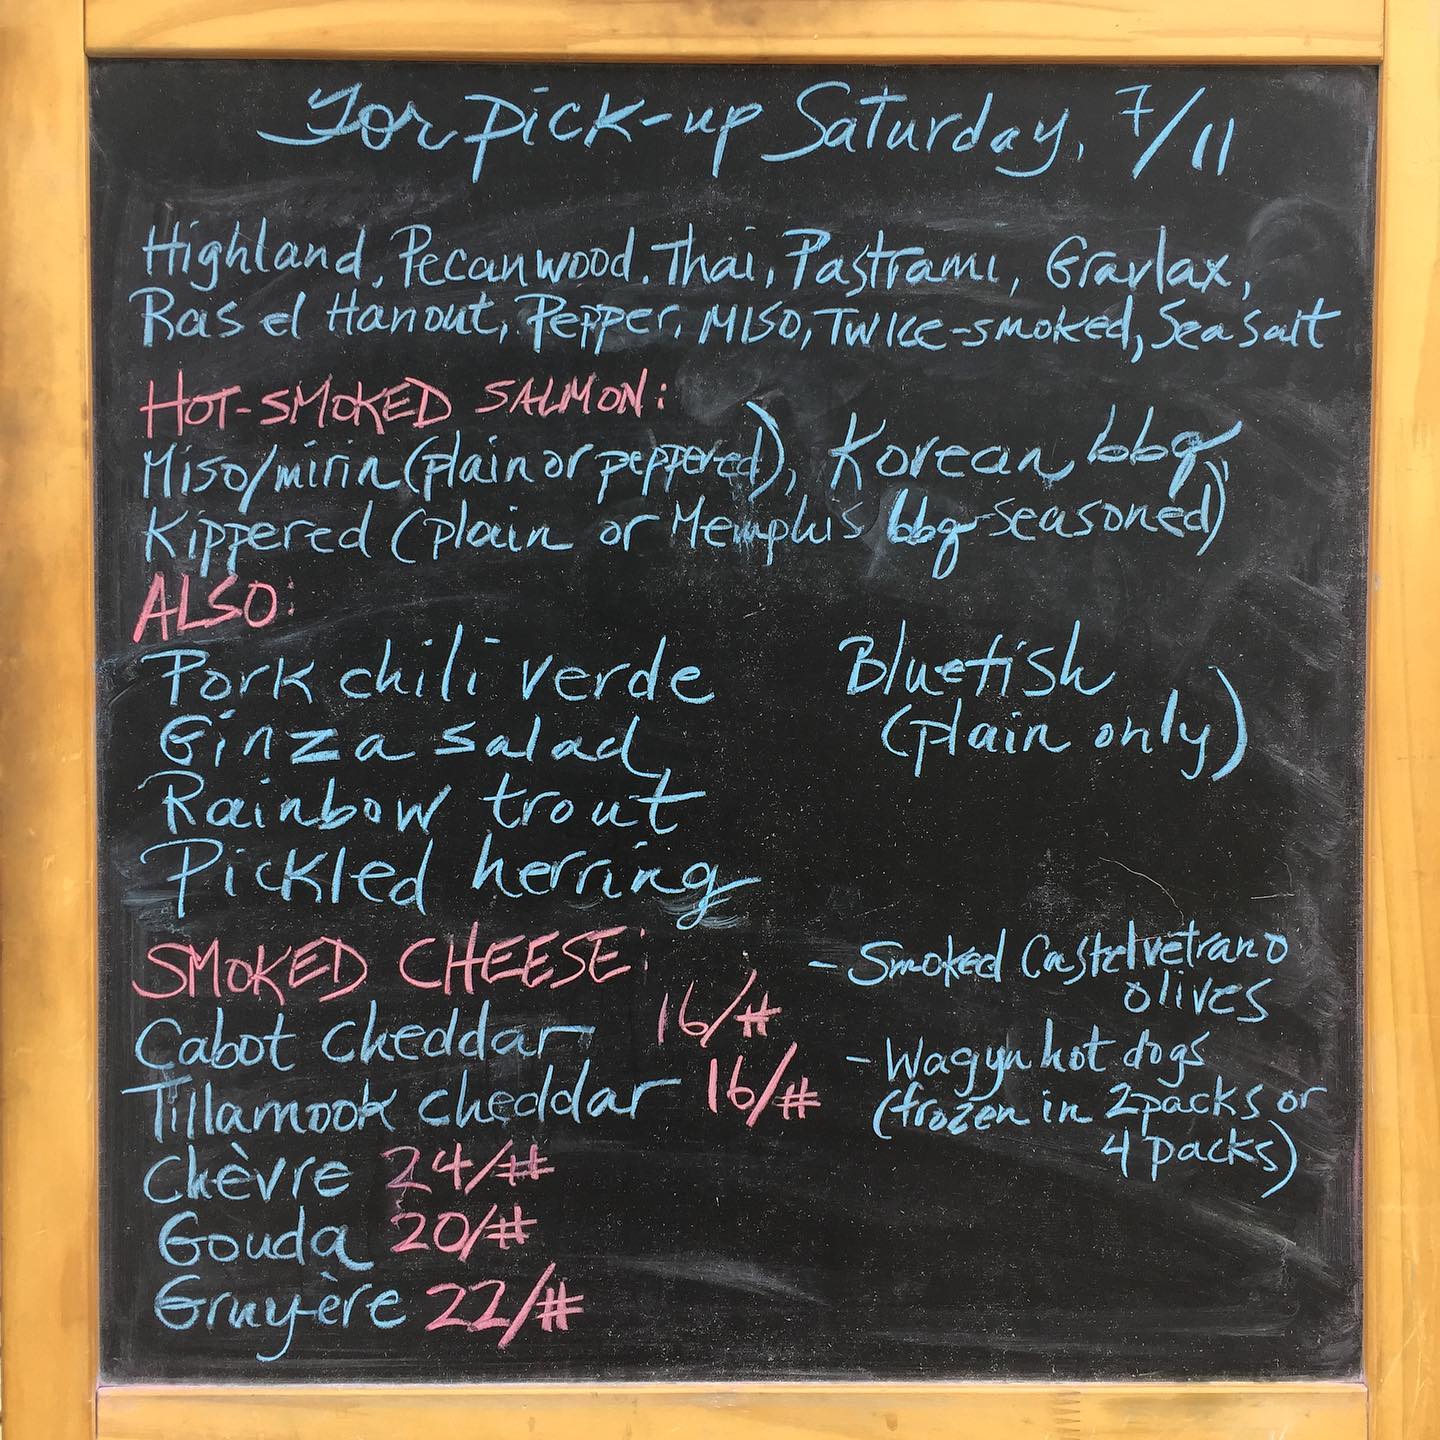 For pick-up Saturday, 7/11
Highland, Pecanwood, Thai, Pastrami, Gravlax,
Ras el Hanout, Pepper, Miso, Twice-smoked, Sea salt
HOT-SMOKED SALMON:
Miso/mirin (plain or peppered), Korean bbq,
Kippered (plain or Memphis bbq-seasoned)
ALSO:
Pork chili verde
Ginza salad,
Rainbow trout
Pickled herring
Bluefish
(plain only)
SMOKED CHEESE:
Cabot cheddar 16/#
Tillamook cheddar 16/#
Chèvre 24/#
Gouda 20/#
Gruyère 22/#
- Smoked Castelvetrano
olives
- Wagyu hot dogs
(frozen in 2 packs or
4 packs)